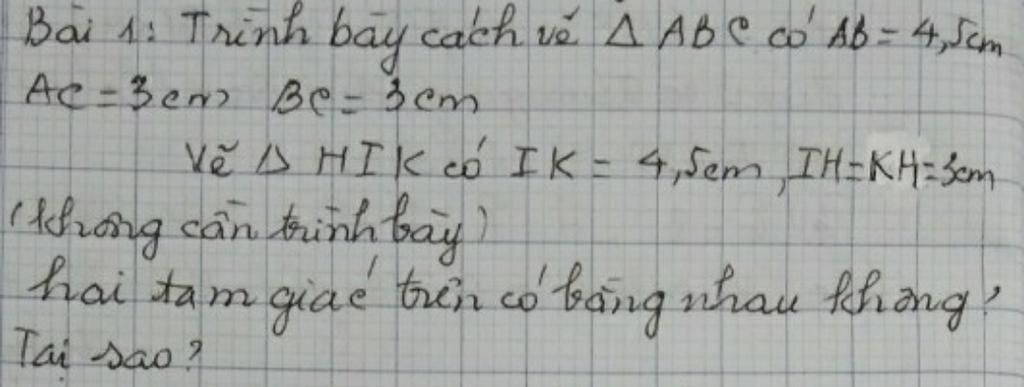 Bài 1: Trình bày cách vẽ Δ ABC có AB = 4,5cm
AC = 3cm BC = 3cm
Vẽ Δ HIK có IK = 4,5cm, IH=KH=3cm
(không cần trình bày)
hai tam giác trên có bằng nhau không?
Tại sao?